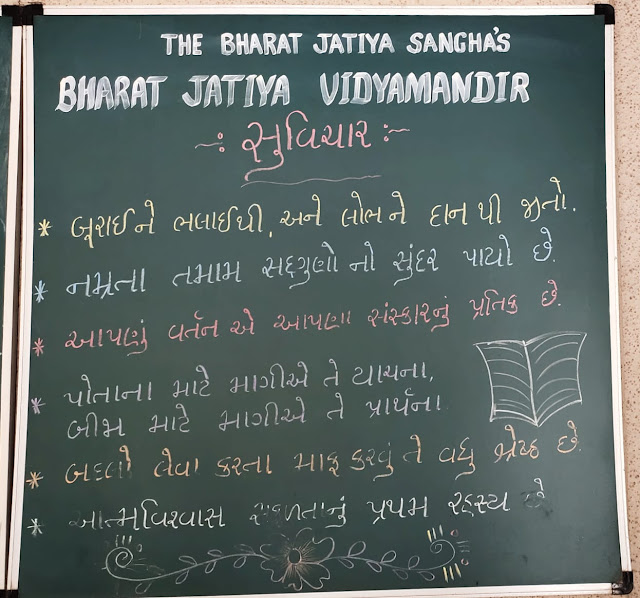 THE BHARAT JATIYA SANGHA'S
BHARAT JATIYA VIDYAMANDIR
~: સુવિચાર :~
* બૂરાઈને ભલાઈથી, અને લોભને દાનથી જીતો.
* નમ્રતા તમામ સદ્દગુણો નો સુંદર પાયો છે.
* આપણું વર્તન એ આપણા સંસ્કારનું પ્રતિક છે.
* પોતાના માટે માગીએ તે યાચના,
બીજા માટે માગીએ તે પ્રાર્થના
* બદલો લેવા કરતા માફ કરવું તે વધુ શ્રેષ્ઠ છે.
* આત્મવિશ્વાસ સફળતાનું પ્રથમ રહસ્ય છે